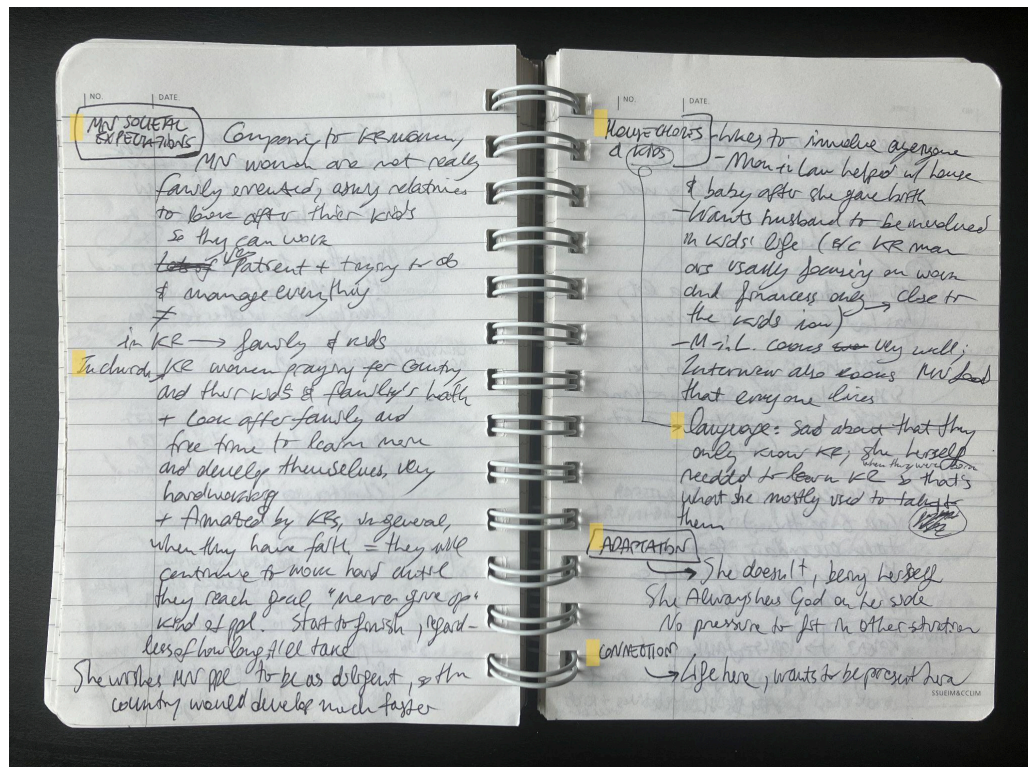 NO. DATE.
MN SOCIETAL
EXPECTATIONS
Comparing to KR women,
MN women are not really
family oriented, asking relatives
to look after thier kids
so they can work
Patient + trying to do
& manage everything
≠
in KR → family & kids
In church, KR women praying for country
and their kids & family's health
+ Look after family and
free time to learn more
and develop themselves, very
hardworking
+ Amazed by KRs, in general,
when they have faith, = they will
continue to work hard until
they reach goal, "never give up"
kind of ppl. Start to finish, regard-
less of how long it'll take
She wishes MN ppl to be as diligent, so the
country would develop much faster
NO. DATE.
HOUSECHORES
& KIDS
- Likes to involve everyone
- Mom-i-Law helped w/ house
& baby after she gave birth
- Wants husband to be involved
in kids' life (b/c KR men
are usually focusing on work
and finances only → close to
the kids now)
- M-i-L. cooks very well;
Interviewer also cooks MN food
that everyone likes
language: sad about that they
only know KR; she herself
when they were born
needed to learn KR so that's
what she mostly used to talk to
them
ADAPTATION
→ She doesn't, being herself
She Always has God on her side
No pressure to fit in other situation
CONNECTION
→ Life here, wants to be present here
SSUEIM&CCLIM